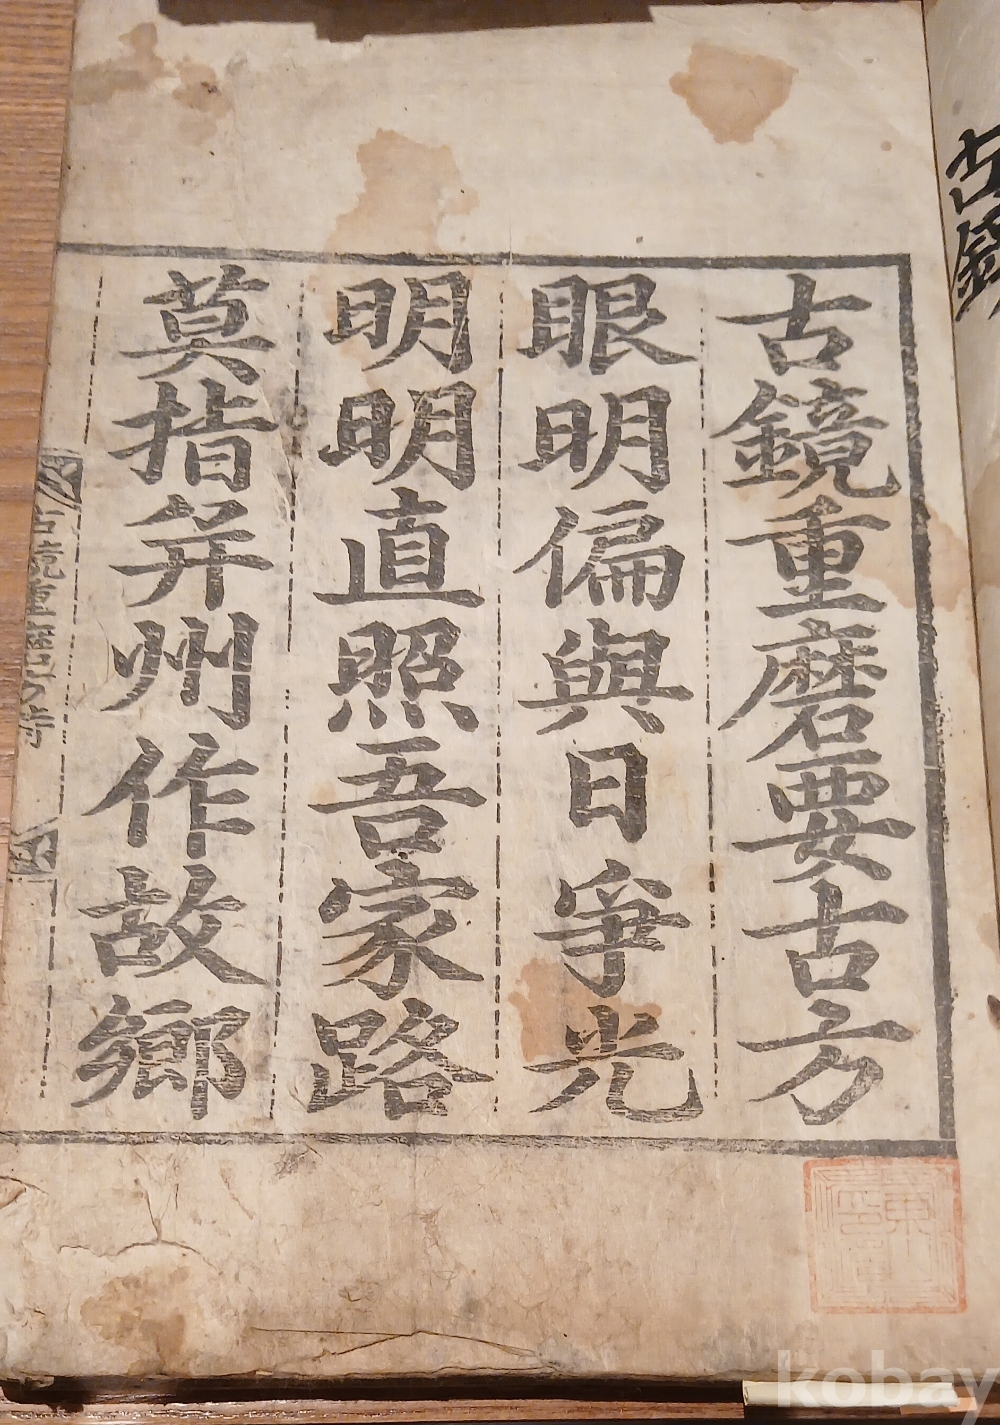 古鏡重磨要古方
眼明偏與日爭光
明明直照吾家路
莫指并州作故鄉
古鏡
古鏡重磨方
kobay